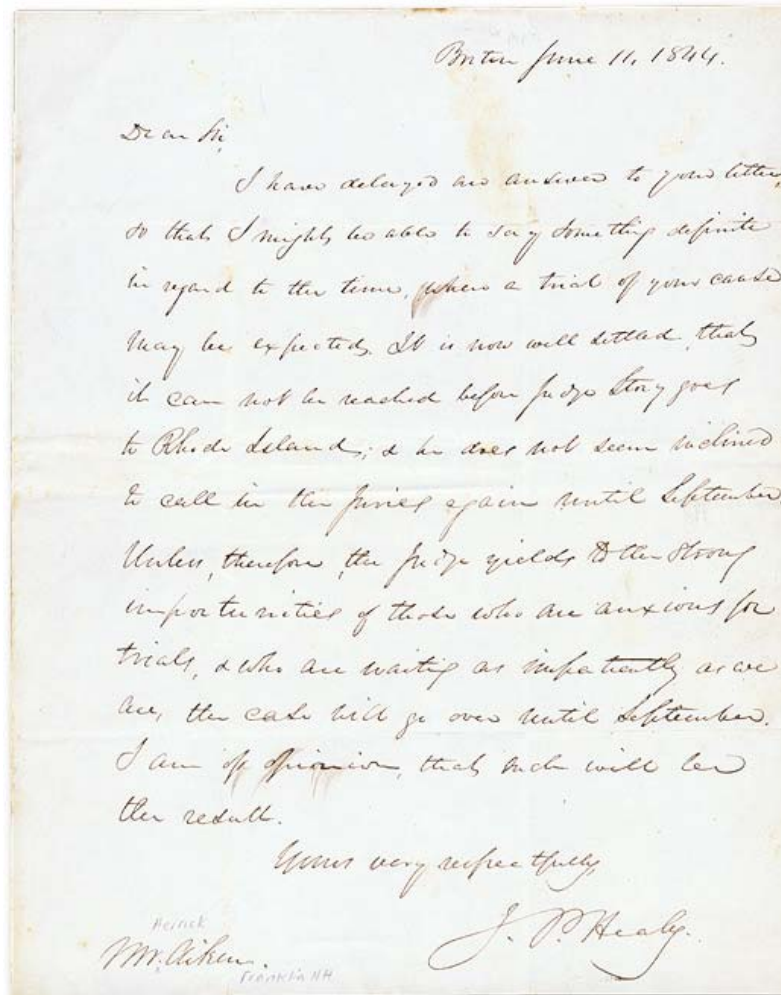 Boston June 11, 1844.
Dear Sir,
I have delayed an answer to your letter,
so that I might be able to say something definite
in regard to the time, when a trial of your cause
may be expected. It is now well settled, that
it can not be reached before Judge Story goes
to Rhode Island; & he does not seem inclined
to call in the juries again until September
Unless, therefore, the Judge yields to the strong
importunities of those who are anxious for
trials, & who are waiting as impatiently as we
are, the case will go over until September.
I am of opinion, that such will be
the result.
Yours very respectfully,
J. P. Healy.
Herrick
Mr. Aiken.
Franklin NH